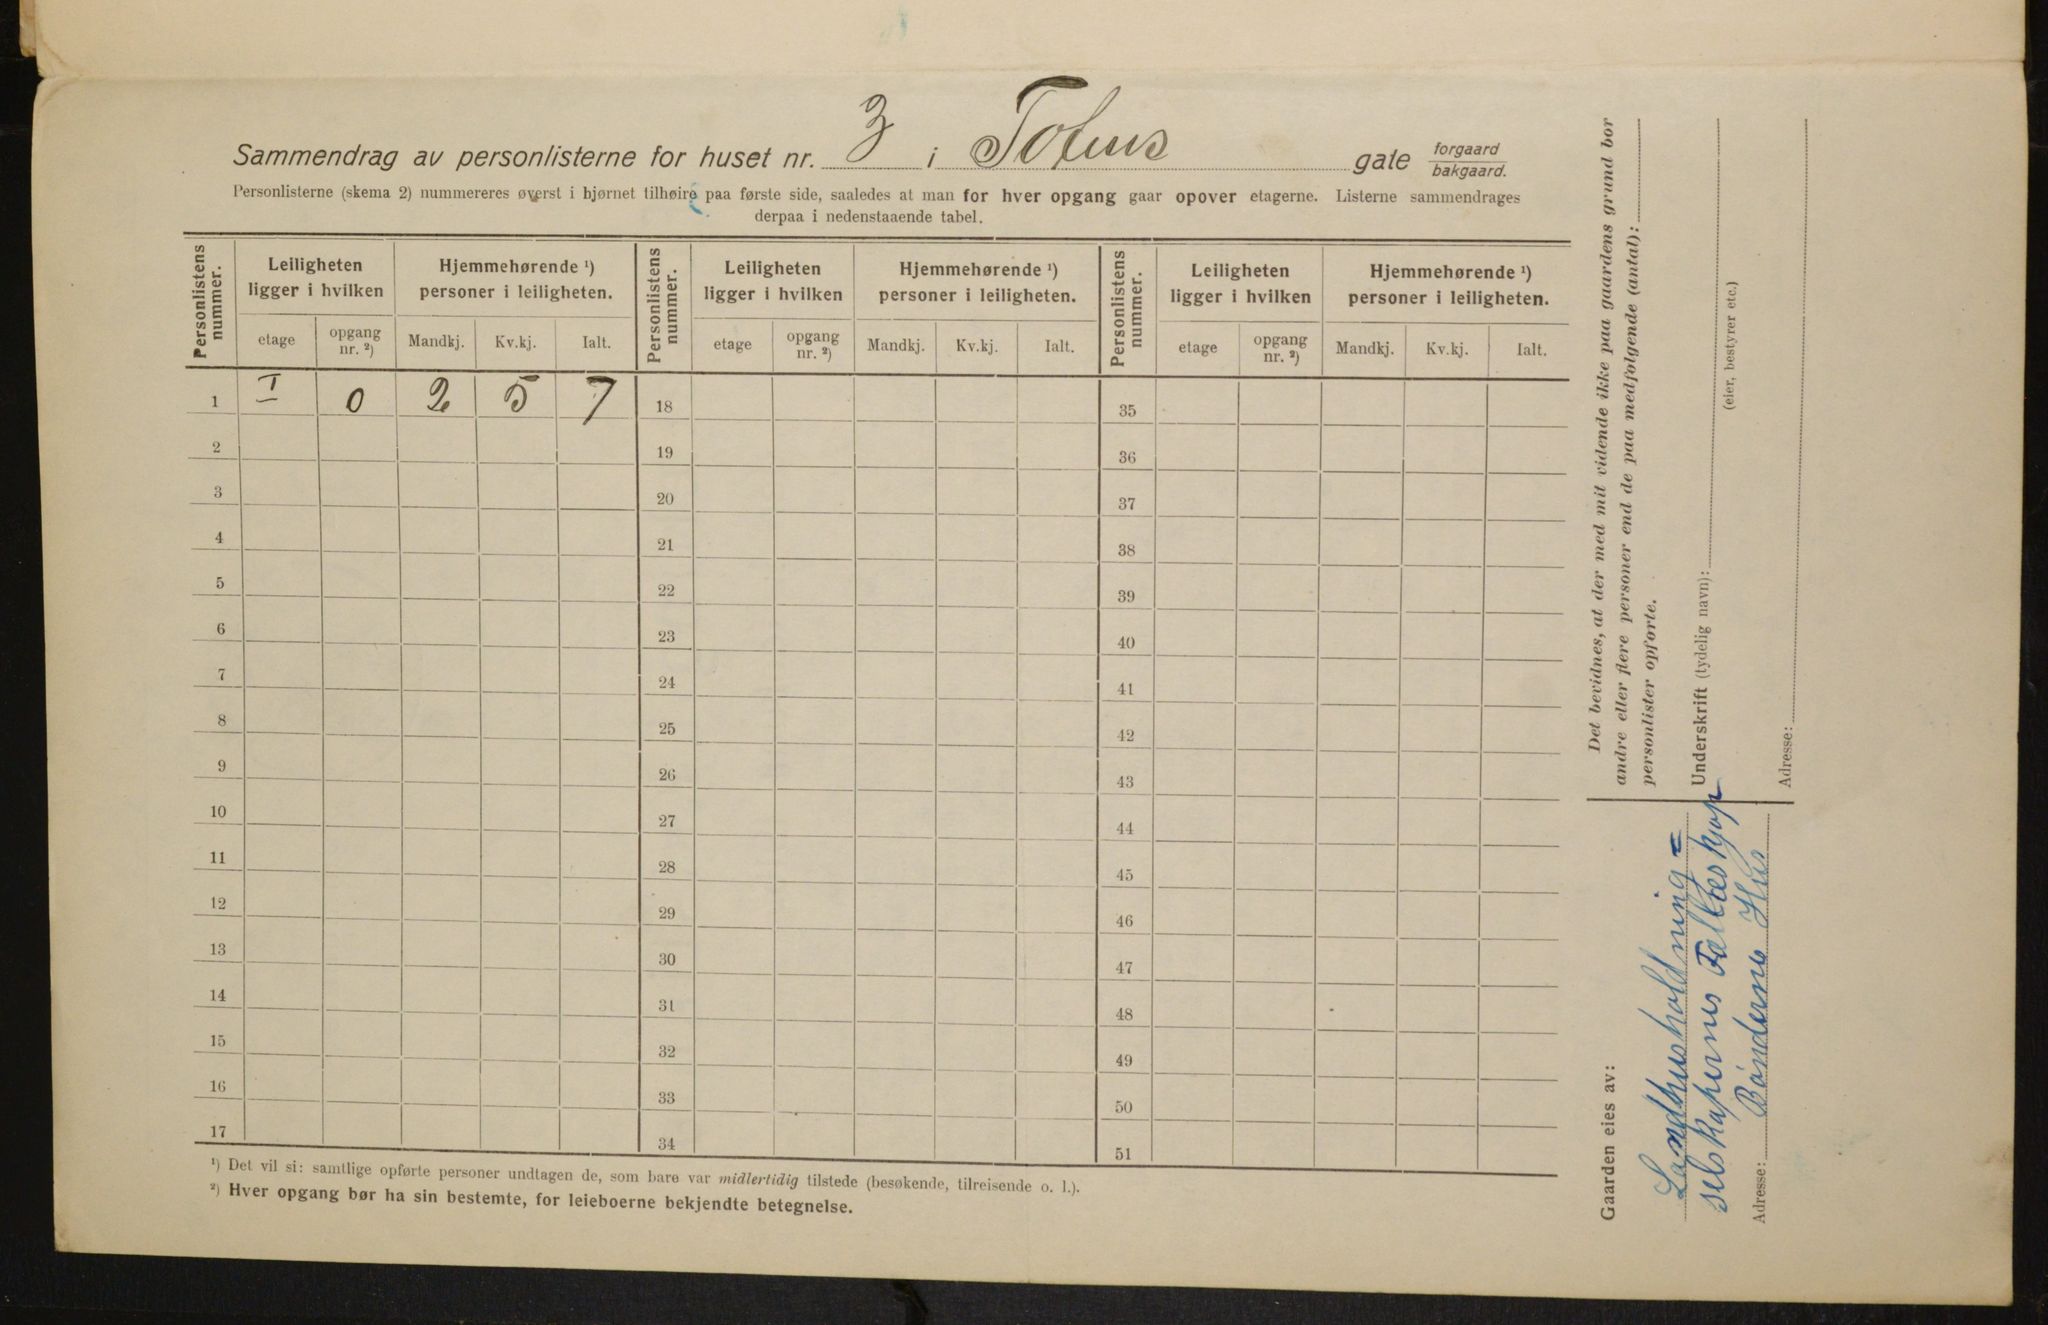 Sammendrag av personlisterne for huset nr. 3 i Tofus gate forgaard bakgaard.
Personlisterne (skema 2) nummereres øverst i hjørnet tilhøire paa første side, saaledes at man for hver opgang gaar opover etagerne. Listerne sammendrages
derpaa i nedenstaaende tabel.
Personlistens nummer. Leiligheten ligger i hvilken Hjemmehørende ¹) personer i leiligheten. Personlistens nummer. Leiligheten ligger i hvilken Hjemmehørende ¹) personer i leiligheten. Personlistens nummer. Leiligheten ligger i hvilken Hjemmehørende ¹) personer i leiligheten.
etage opgang nr. ²) Mandkj. Kv.kj. Ialt. etage opgang nr. ²) Mandkj. Kv.kj. Ialt. etage opgang nr. ²) Mandkj. Kv.kj. Ialt.
1 I 0 2 5 7 18 35
2 19 36
3 20 37
4 21 38
5 22 39
6 23 40
7 24 41
8 25 42
9 26 43
10 27 44
11 28 45
12 29 46
13 30 47
14 31 48
15 32 49
16 33 50
17 34 51
¹) Det vil si: samtlige opførte personer undtagen de, som bare var midlertidig tilstede (besøkende, tilreisende o. l.).
²) Hver opgang bør ha sin bestemte, for leieboerne bekjendte betegnelse.
Det bevidnes, at der med mit vidende ikke paa gaardens grund bor
andre eller flere personer end de paa medfølgende (antal):
personlister opførte.
Underskrift (tydelig navn):
(eier, bestyrer etc.)
Adresse:
Gaarden eies av:
Landhusholdning=
selskapernes Fælleskjøp
Adresse: Bøndernes Hus